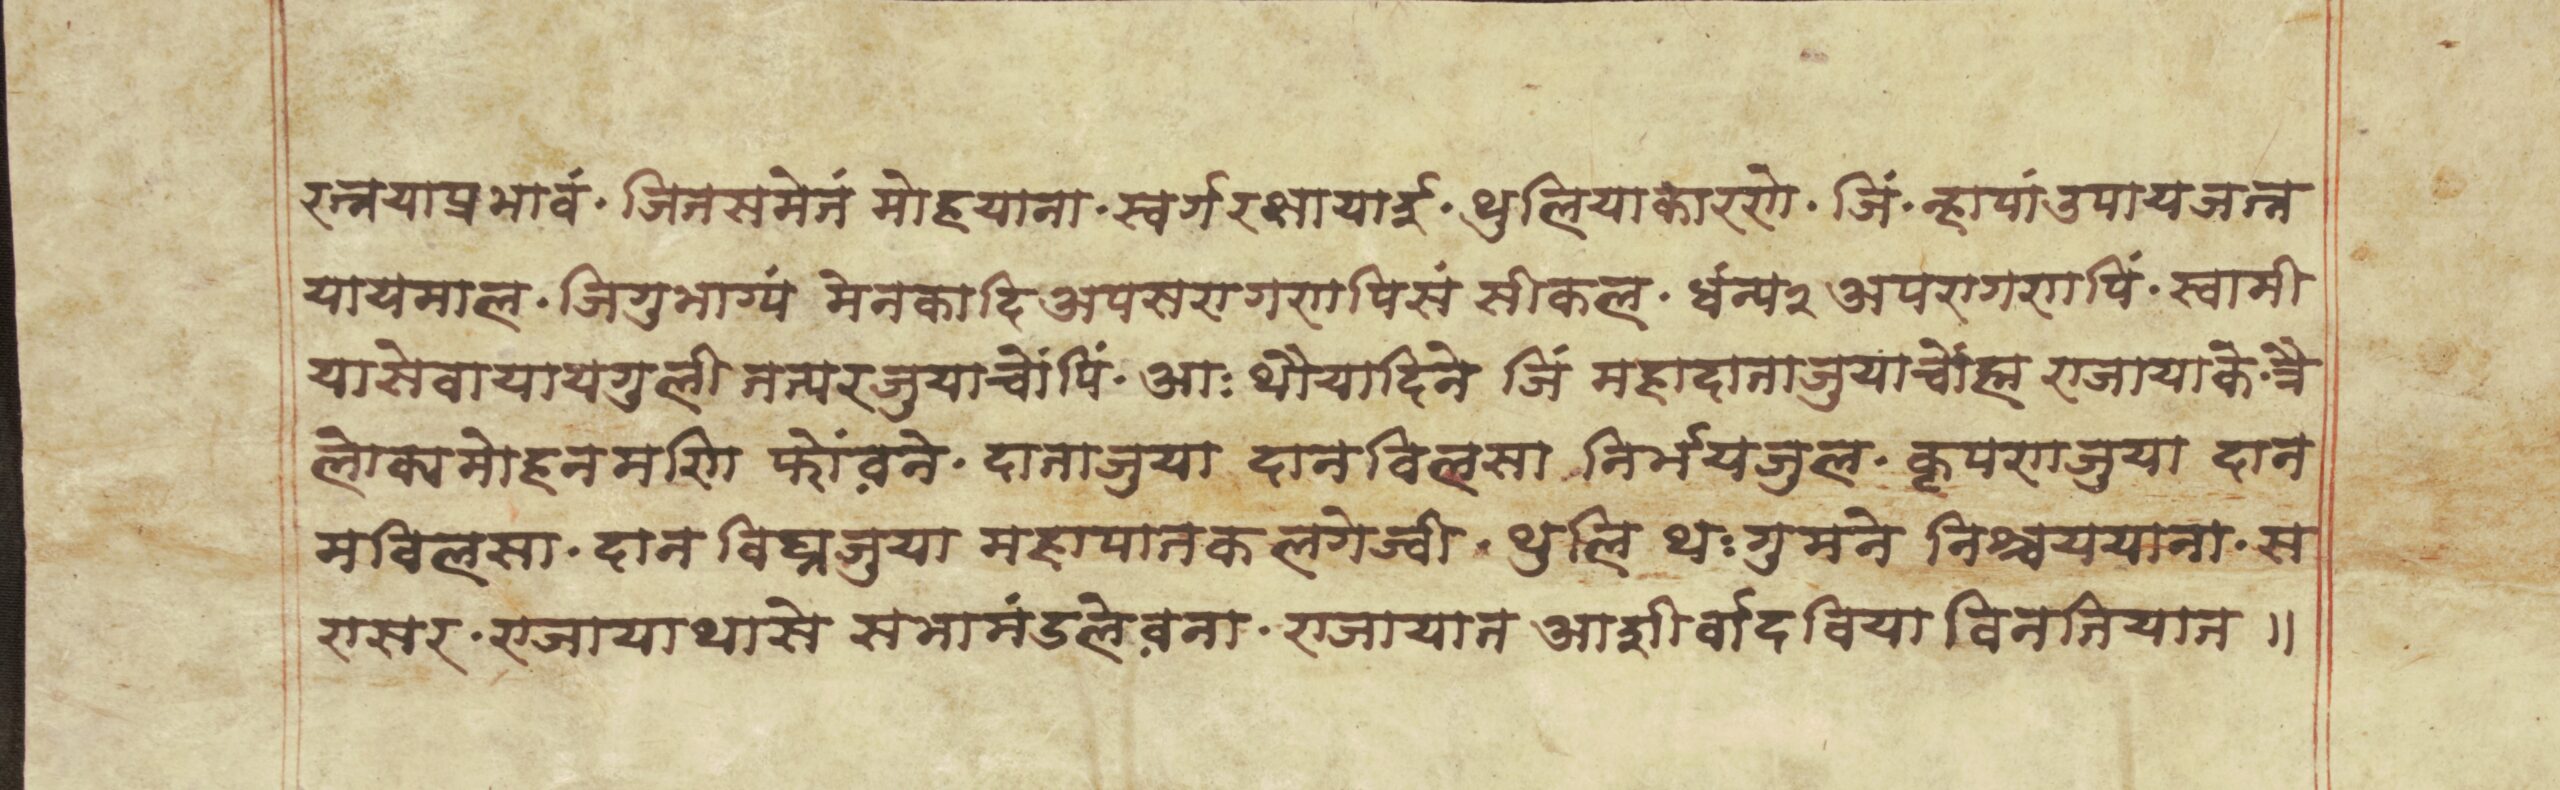 रत्नयाप्रभावं· जिनसमेतं मोहयाना· स्वर्गरक्षायाई· थुलियाकारणे· जिं· न्हापां उपायजत्न
यायमाल· जिगुभाग्यं मेनकादिअपसरागणपिसं सीकल· धंन्य२ अपरागणपिं· स्वामी
यासेवायायगुली तत्परजुयाचोंपिं· आः थौयादिने जिं महादाताजुयाचोंह्म राजायाके· त्रै
लोक्यमोहनमणि फोंव़ने· दाताजुया दानविलसा निर्भयजुल· कृपणजुया दान
मविलसा· दान विघ्नजुया महापातक लगेज्वी· थुलि थःगुमने निश्चययाना· स
रासर· राजायाथासे सभामंडलेव़ना· राजायात आशीर्वादविया विनतियात ॥